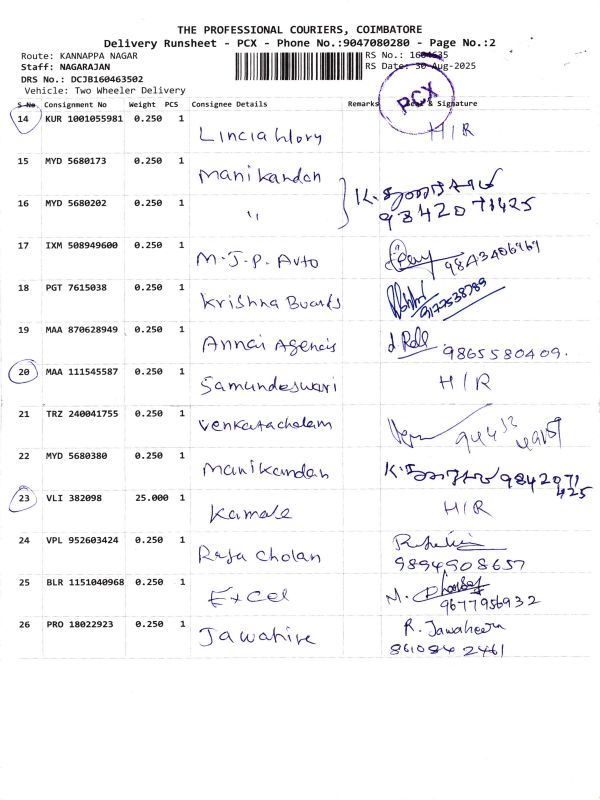 THE PROFESSIONAL COURIERS, COIMBATORE
Delivery Runsheet - PCX - Phone No.:9047080280 - Page No.:2
Route: KANNAPPA NAGAR RS No.: 1604635
Staff: NAGARAJAN RS Date: 30-Aug-2025
DRS No.: DCJB160463502
Vehicle: Two Wheeler Delivery
PCX
S No Consignment No Weight PCS Consignee Details Remarks & Signature
14 KUR 1001055981 0.250 1 H/R
15 MYD 5680173 0.250 1 Manikandan
16 MYD 5680202 0.250 1 " K. 
9842071425
17 IXM 508949600 0.250 1 M.J.P. Auto 9843406969
18 PGT 7615038 0.250 1 Krishna Boards
19 MAA 870628949 0.250 1 Annai Agencis 9865580409.
20 MAA 111545587 0.250 1 Samundeswari H/R
21 TRZ 240041755 0.250 1 Venkatachalam
22 MYD 5680380 0.250 1 Manikandan K. 9842071
425
23 VLI 382098 25.000 1 Kamale H/R
24 VPL 952603424 0.250 1 Raja cholan
9894908657
25 BLR 1151040968 0.250 1 Excel M.
9677956932
26 PRO 18022923 0.250 1 Jawahire R. Jawaheera
861084 2461